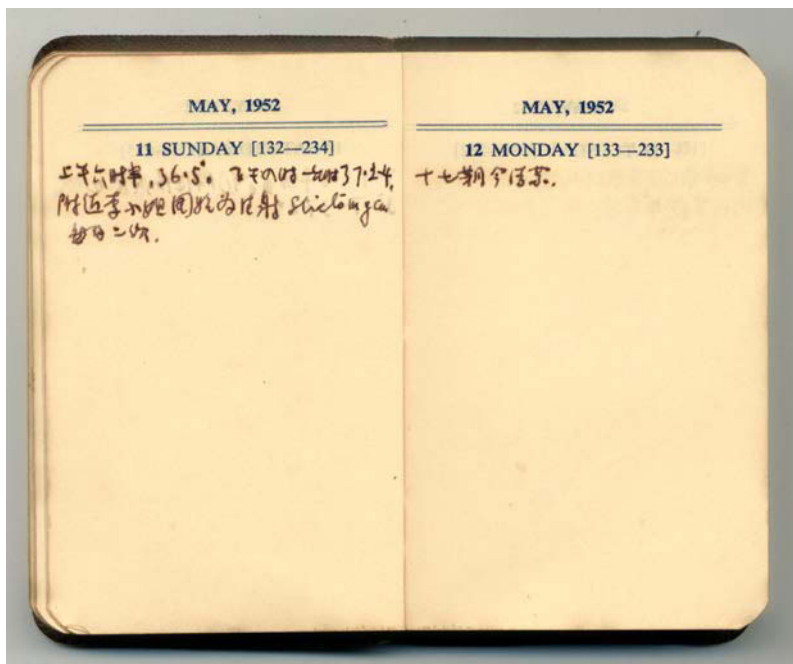 MAY, 1952
11 SUNDAY [132—234]
上午六时半，36·5°. 下午四时 37·2
附近李小姐开始为注射
每日二次.
MAY, 1952
12 MONDAY [133—233]
十七期今结束.